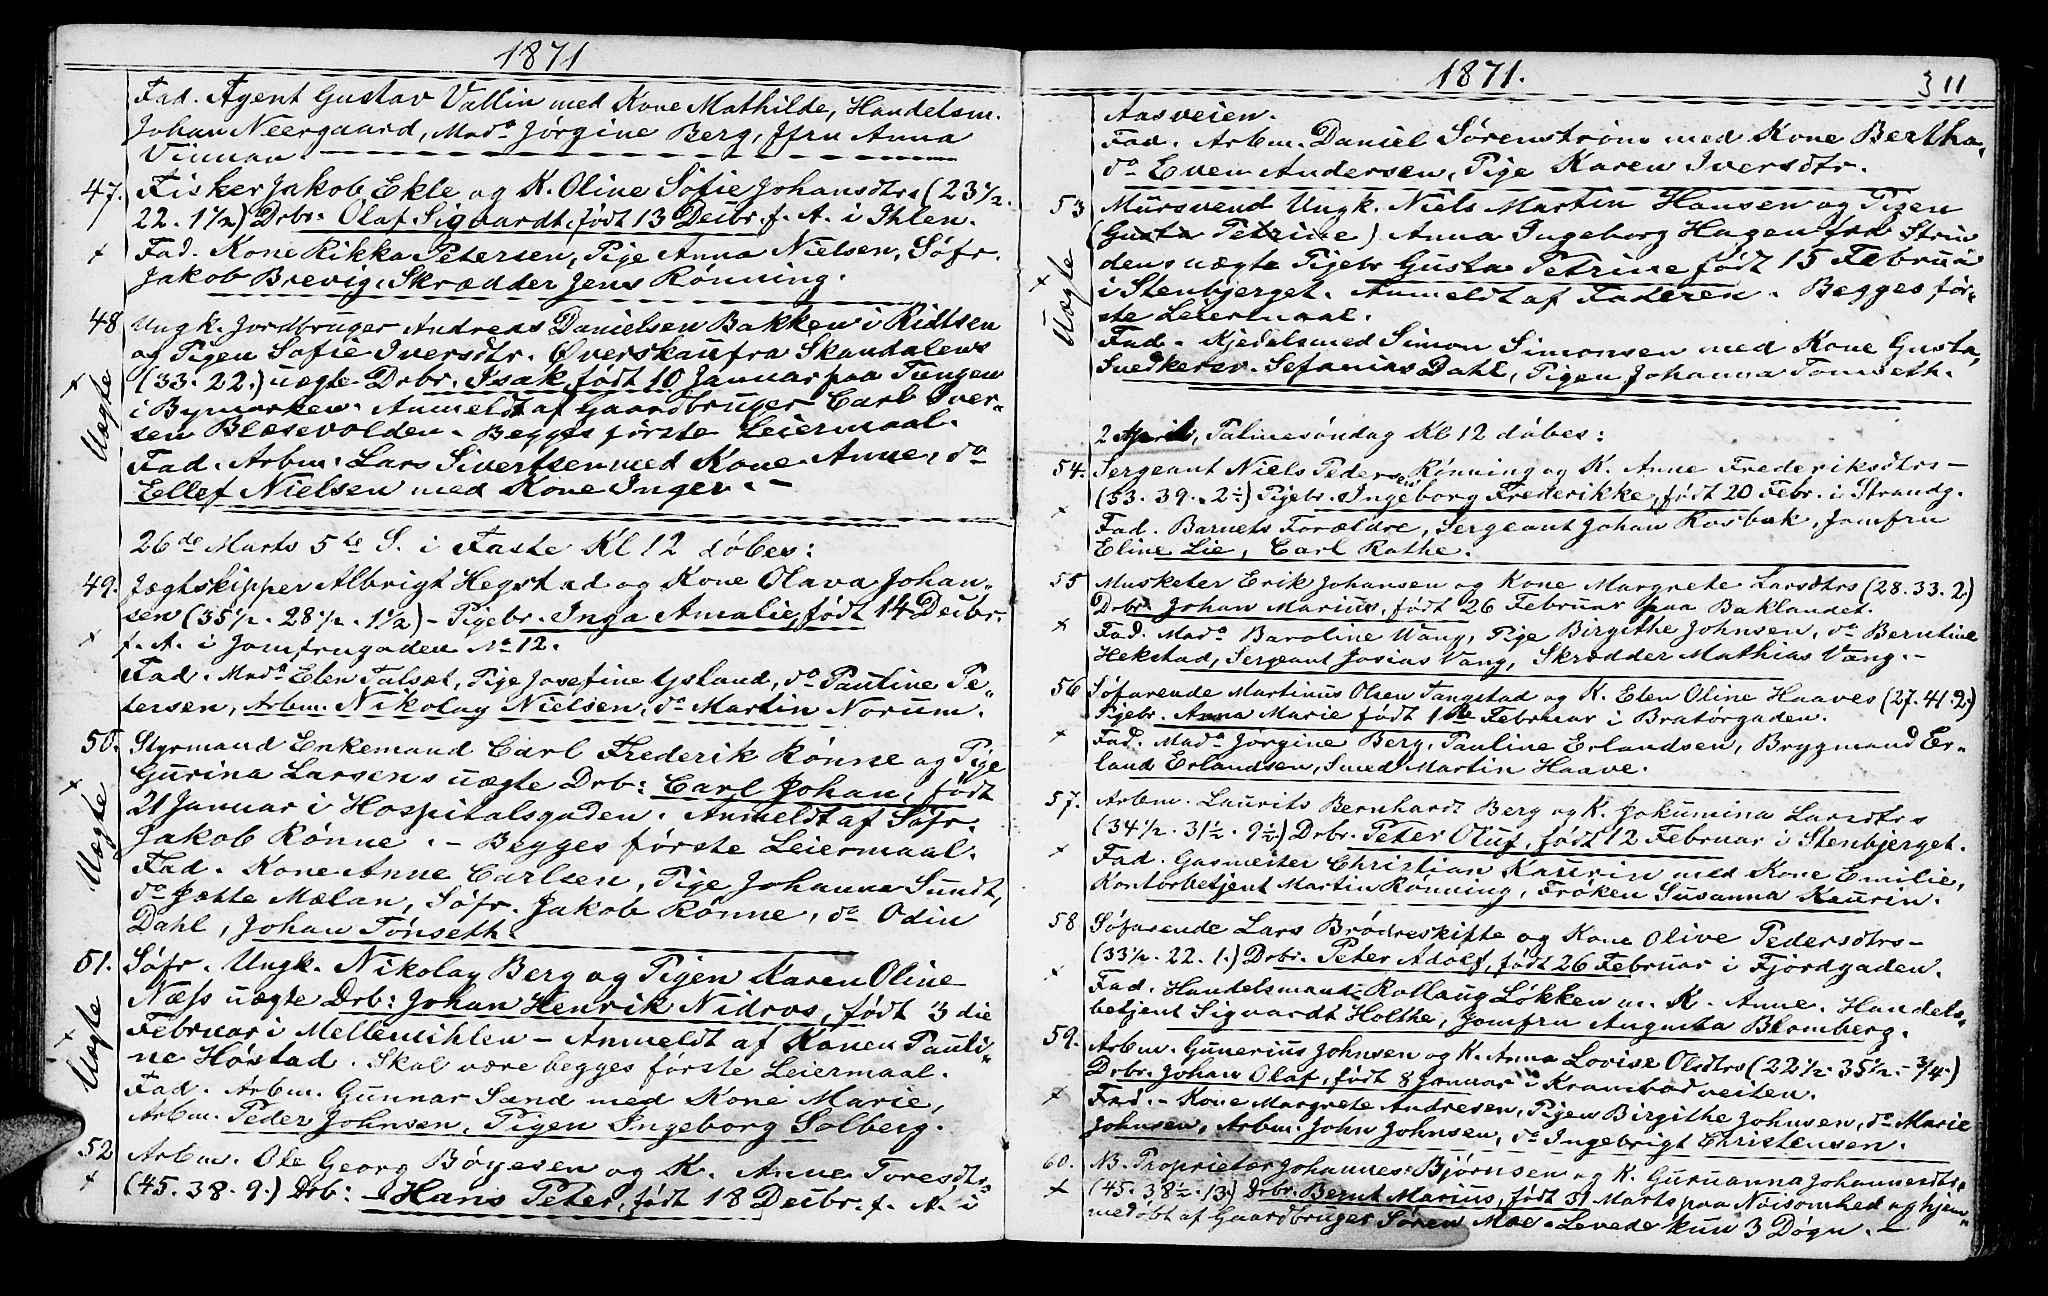 1871
Fad. Agent Gustav Vallin med Kone Mathilde, Handelsm.
Johan Neergaard, Mad. Jörgine Berg, Jfru Anna
Vinnan.
47. Fisker Jakob Ekle og K. Oline Sofie Johansdtr. (23 1/2.
22. 1 1/2) Drbr. Olaf Sigvardt, födt 13 Decbr. f. A. i Ihlen.
Fad. Kone Rikka Petersen, Pige Anna Nielsen, Söfr.
Jakob Brevig, Skrædder Jens Rönning.
48 Ungk. Jordbruger Andreas Danielsen Bakken i
og Pigen Sofie Iversdtr. Överskau fra Skandalens
(33. 22.) uægte Drbr. Isak, födt 10 Januar paa Tungen
i Bymarken. Anmeldt af Gaardbruger Carl Iver-
sen Blæsevolden. Begges förste Leiermaal.
Uægte
Fad. Arbm. Lars Sivertsen med Kone Anne, do
Ellef Nielsen med Kone Inger. -
26de Marts 5te S. i Faste Kl 12 döbes:
49. Jægtskipper Albrigt Hegstad og Kone Olava Johan-
sen (35 1/2. 28 1/2. 1 1/2) - Pigebr. Inga Amalie, födt 14 Decbr.
f. A. i Jomfrugaden No 12.
Fad. Mad. Elen Talset, Pige Josefine Ysland, do Pauline Pe-
tersen, Arbm. Nikolay Nielsen, do Martin Norum.
50. Styrmand Enkemand Carl Frederik Rönne og Pige
Gurina Larsens uægte Drb: Carl Johan, födt
21 Januar i Hospitalsgaden. Anmeldt af Söfr.
Jakob Rönne. - Begges förste Leiermaal.
Uægte
Fad. Kone Anne Carlsen, Pige Johanna Sundt,
do Jette Mælan, Söfr. Jakob Rönne, do Odin
Dahl, Johan Tönseth.
51. Söfr. Ungk. Nikolay Berg og Pigen Karen Oline
Næss uægte Drb: Johan Henrik Nidros, födt 3 die
Februar i Mellemihlen - Anmeldt af Konen Pauli-
ne Höstad. Skal være begges förste Leiermaal.
Uægte
Fad. Arbm. Gunnar Sand med Kone Marie,
Arbm. Peder Johnsen, Pigen Ingeborg Solberg.
52 Arbm. Ole Georg Böyesen og K. Anne Toresdtr.
(45. 38. 9.) Drb: - Hans Peter, födt 18 Decbr. f. A. i
1871. 311
Aasveien.
Fad. Arbm. Daniel Sörenström med Kone Bertha,
do Even Andersen, Pige Karen Iversdtr.
53 Mursvend Ungk. Niels Martin Hansen og Pigen
(Gusta Petrine) Anna Ingeborg Hagen fra Strin
dens uægte Pigebr Gusta Petrine födt 15 Februar
i Stenbjerget. Anmeldt af Faderen. Begges för-
ste Leiermaal.
Uægte
Fad. Kjedelsmed Simon Simonsen med Kone Gusta,
Snedkersv. Sefanias Dahl, Pigen Johanna Tönseth.
2 April, Palmesöndag Kl 12 döbes:
54. Sergeant Niels Pedersen Rönning og K. Anne Frederiksdtr -
(53. 39. 2 1/2) Pigebr. Ingeborg Frederikke, födt 20 Febr. i Strandg.
Fad. Barnets Forældre, Sergeant Johan Rosbak, Jomfru
Eline Lie, Carl Rothe.
55 Musketer Erik Johansen og Kone Margrete Larsdtrs (28. 33. 2.)
Drbr. Johan Marius, födt 26 Februar paa Baklandet.
Fad. Mad. Baroline Wang, Pige Birgithe Johnsen, do Berntine
Hekstad, Sergeant Josias Vang, Skrædder Mathias Vang. -
56 Söfarende Martinus Olsen Tangstad og K. Elen Oline Haaves (27. 41. 2.)
Pigebr. Anna Marie födt 1ste Februar i Bratörgaden.
Fad. Mad. Jörgine Berg, Pauline Erlandsen, Brygmand Er-
land Erlandsen, Smed Martin Haave.
57. Arbm. Laurits Bernhardt Berg og K. Jakumina Larsdtrs
(34 1/2. 31 1/2. 9 1/2.) Drbr. Peter Oluf, födt 12 Februar i Stenbjerget.
Fad. Gasmester Christian Kaurin med Kone Emilie,
Kontorbetjent Martin Rönning, Fröken Susanna Kaurin.
58 Söfarende Lars Brödreskifte og Kone Olive Pedersdtrs -
(33 1/2. 22. 1.) Drbr. Peter Adolf, födt 26 Februar i Fjordgaden.
Fad. Handelsmand Rollaug Lökken m. K. Anne. Handels-
betjent Sigvardt Holthe, Jomfru Augusta Blomberg.
59. Arbm. Gunerius Johnsen og K. Anna Lovise Olsdtrs (22 1/2. 35 1/2. - 3/4.)
Drbr. Johan Olaf, födt 8 Januar i Krambodveiten.
Fad. - Kone Margrete Andresen, Pigen Birgithe Johnsen, do Marie
Johnsen, Arbm. John Johnsen, do Ingebrigt Christensen.
60. NB. Proprietær Johannes Björnsen og K. Guruanna Johannesdtr.
(45. 38 1/2. 13.) Drbr. Bernt Marius, födt 31 Marts paa Nöisomhed og hjem-
medöbt af Gaardbruger Sören Moe. Levede kun 3 Dögn. -